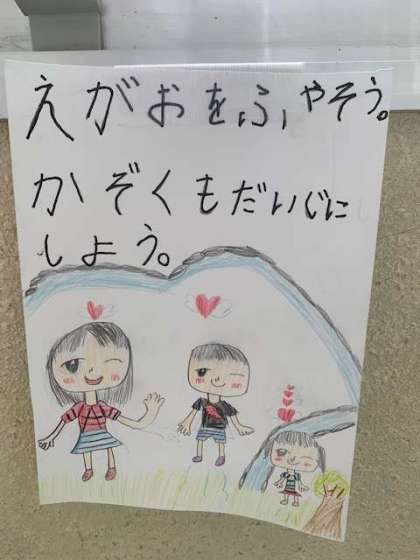 えがおをふやそう。
かぞくもだいじに
しよう。